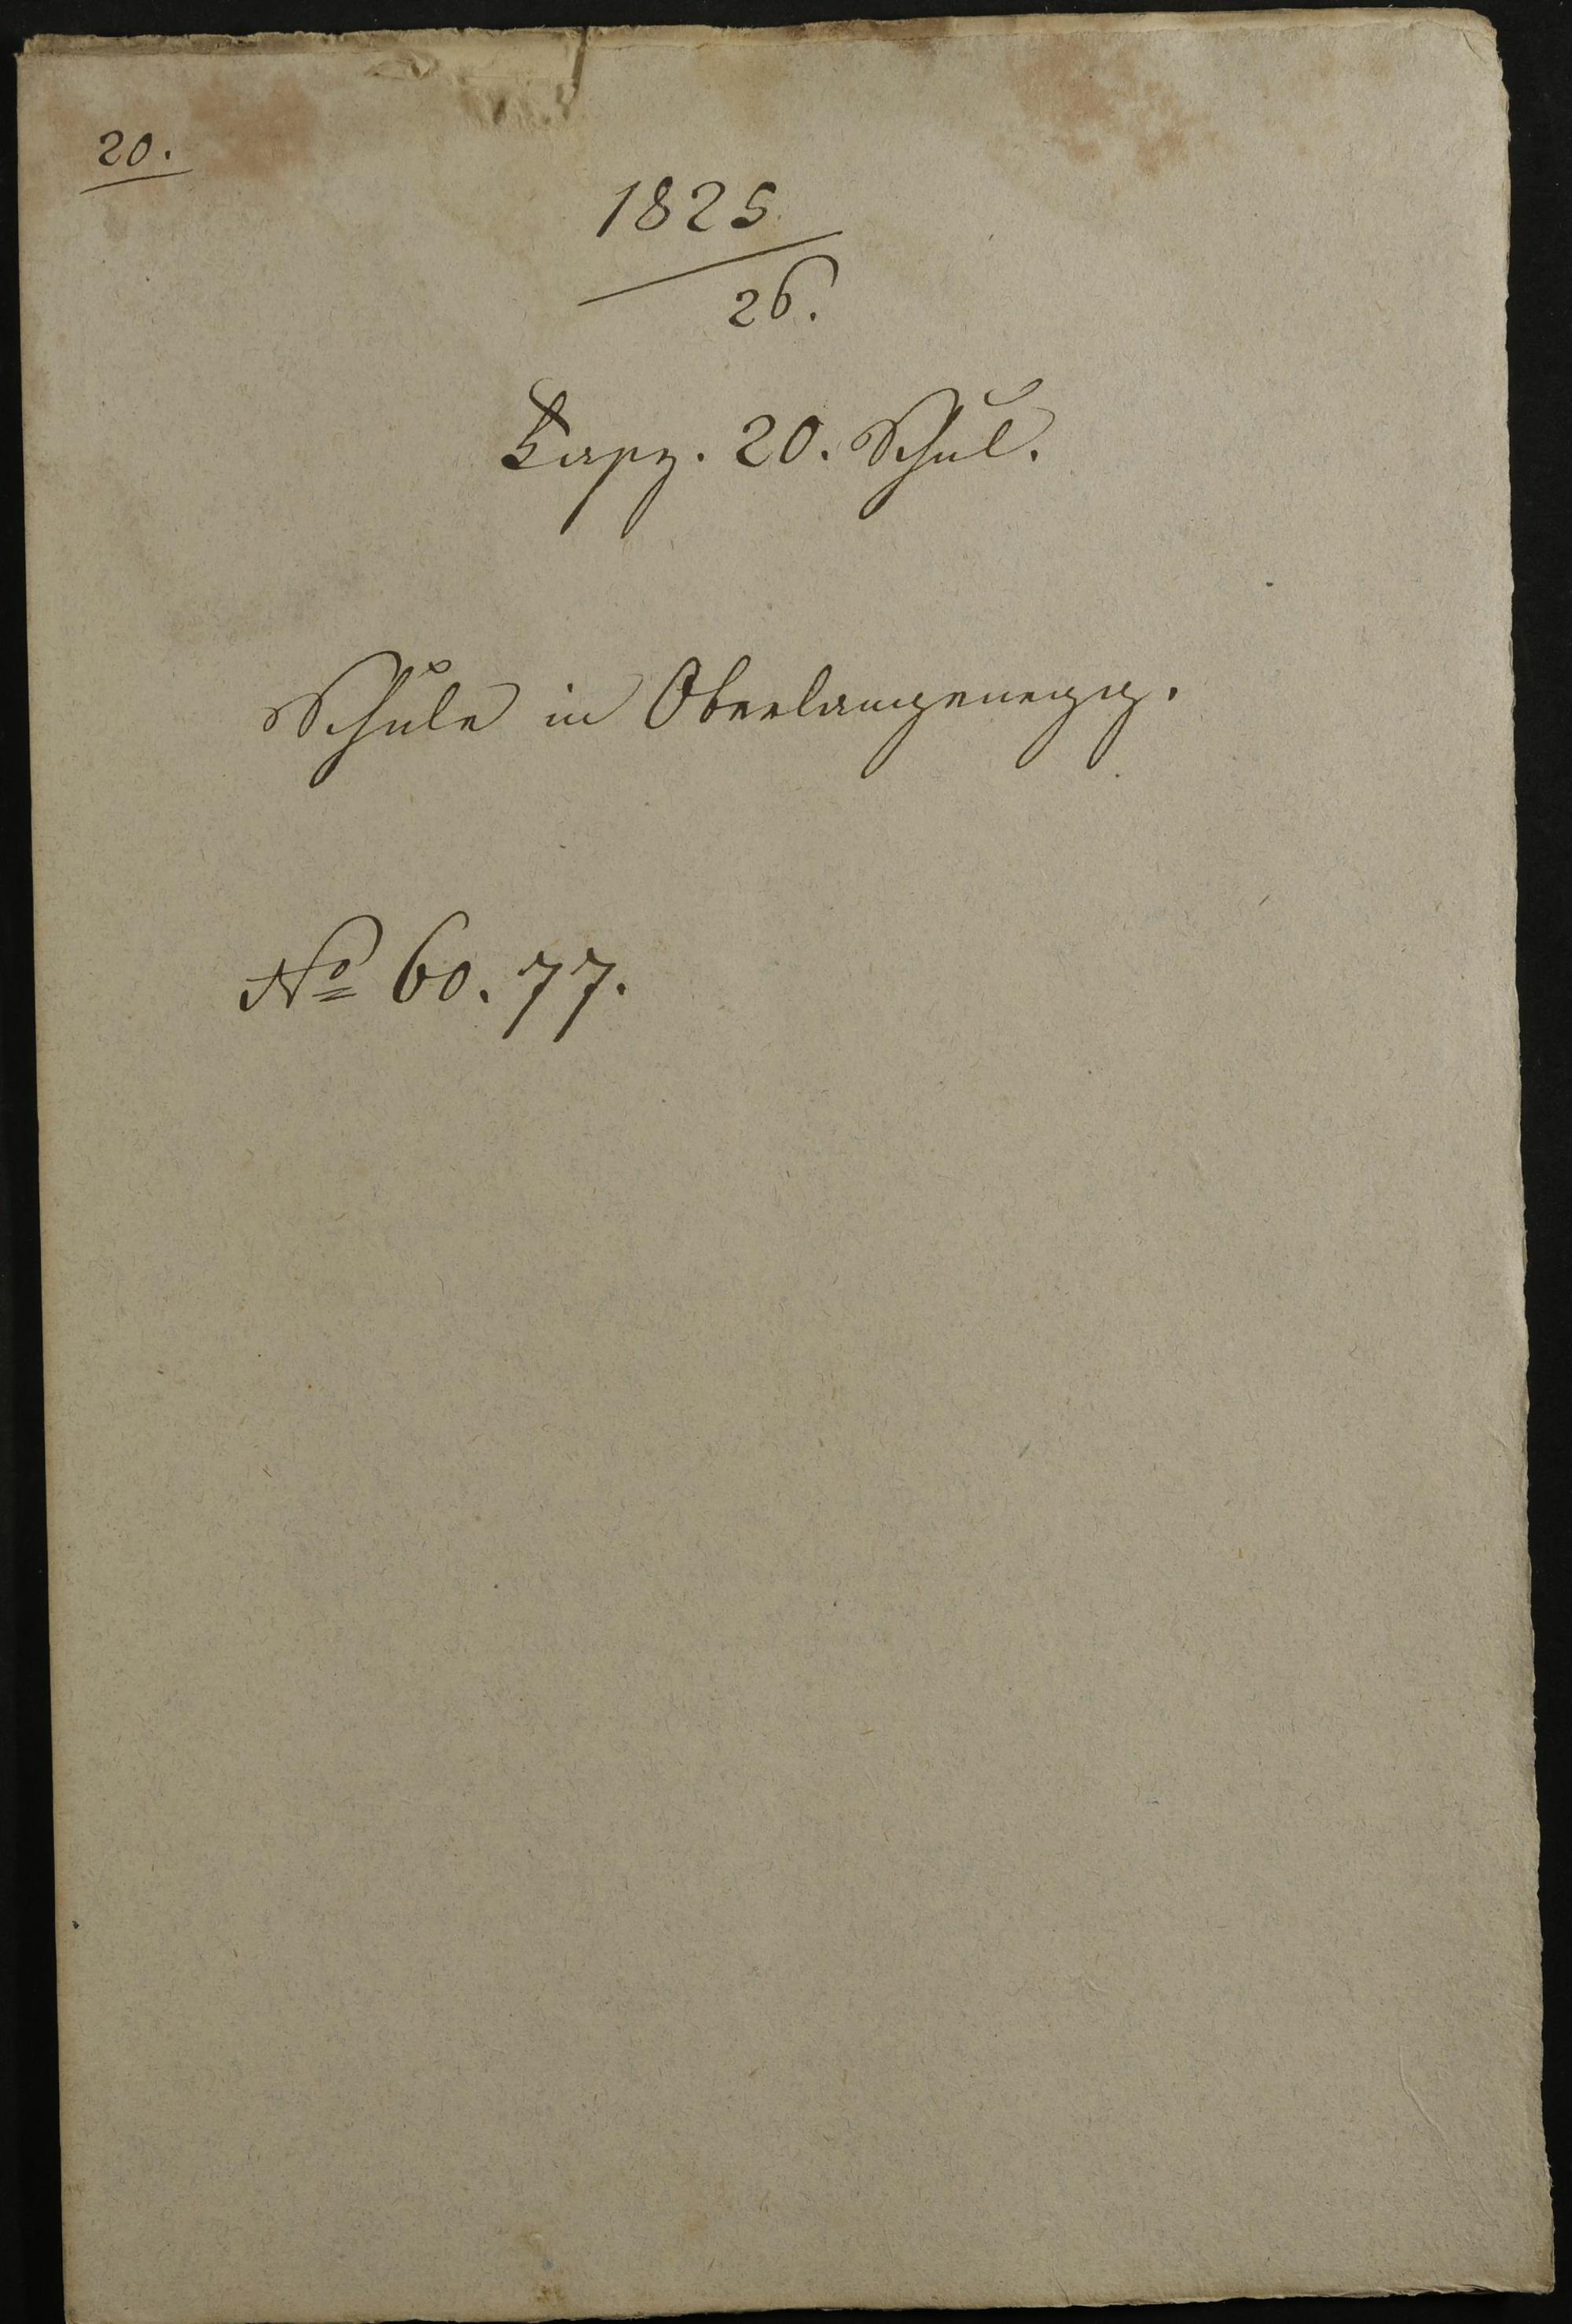 20.
1825
26.
Fasz. 20. Schul.
Schule in Oberlangenegg.
No 60. 77.